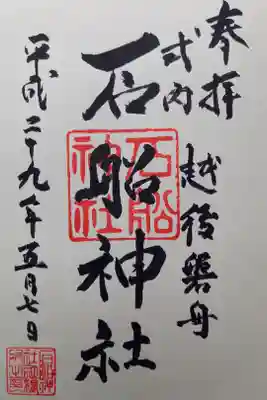 奉拝 越後磐舟
式内
石船神社
平成二十九年五月七日
石船神社